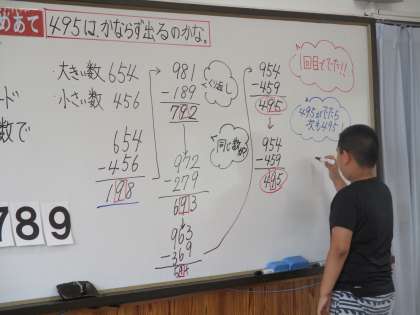 めあて
495は、かならず出るのかな。
・大きい数 654
・小さい数 456
ード
数で
654
-456
198
789
981
-189
792
くり返し
972
-279
693
同じ数が
963
-369
594
954
-459
495
954
-459
495
回目ででた!!
495がでたら
次も495